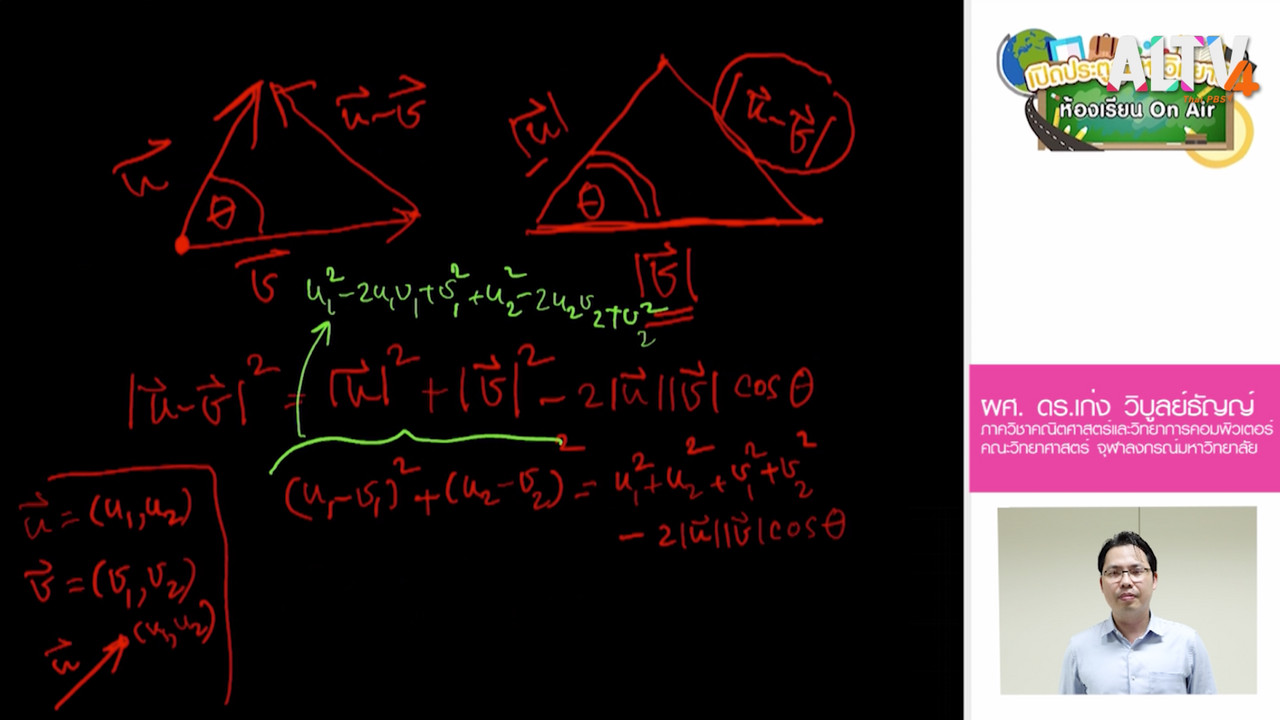 u⃗
u⃗-v⃗
θ
v⃗
|u⃗|
|u⃗-v⃗|
θ
|v⃗|
u₁²-2u₁v₁+v₁²+u₂²-2u₂v₂+v₂²
|u⃗-v⃗|² = |u⃗|²+|v⃗|²-2|u⃗||v⃗| cos θ
(u₁-v₁)²+(u₂-v₂)² = u₁²+u₂²+v₁²+v₂²
-2|u⃗||v⃗|cos θ
u⃗=(u₁,u₂)
v⃗=(v₁,v₂)
(u₁,u₂)
u⃗
ALTV
4
Thai PBS
ห้องเรียน On Air
ผศ. ดร.เก่ง วิบูลย์ธัญญ์
ภาควิชาคณิตศาสตร์และวิทยาการคอมพิวเตอร์
คณะวิทยาศาสตร์ จุฬาลงกรณ์มหาวิทยาลัย